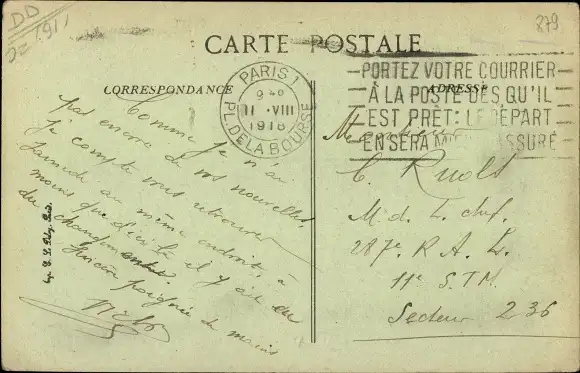 DD
879
CARTE POSTALE
CORRESPONDANCE
ADRESSE
PARIS 1
9 40
11 · VIII
1918
PL. DE LA BOURSE
PORTEZ VOTRE COURRIER
À LA POSTE DÈS QU'IL
EST PRÊT: LE DÉPART
EN SERA ASSURÉ
Comme je n'ai
pas encore de vos nouvelles,
je compte vous retrouver
samedi au même endroit, à
moins que d'ici là il y ait du
du changement.
Sincère poignée de mains
Monsieur
C. Ruols
M.d. L. chef.
287e R. A. L.
11e S. T. M.
Secteur 236